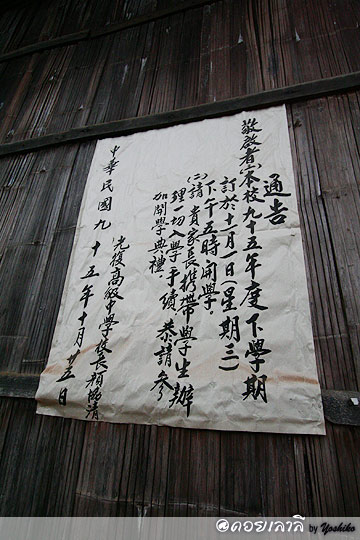 通告
敬啟者㈠本校九十五年度下學期
訂於十一月一日(星期三)
下午五時開學。
㈡請貴家長携帶學生辦
理一切入學手續恭請參
加開學典禮。
光復高級中學校長顏協清
中華民國九十五年十月廿五日
ดอยเลาลี
by Yoshiko